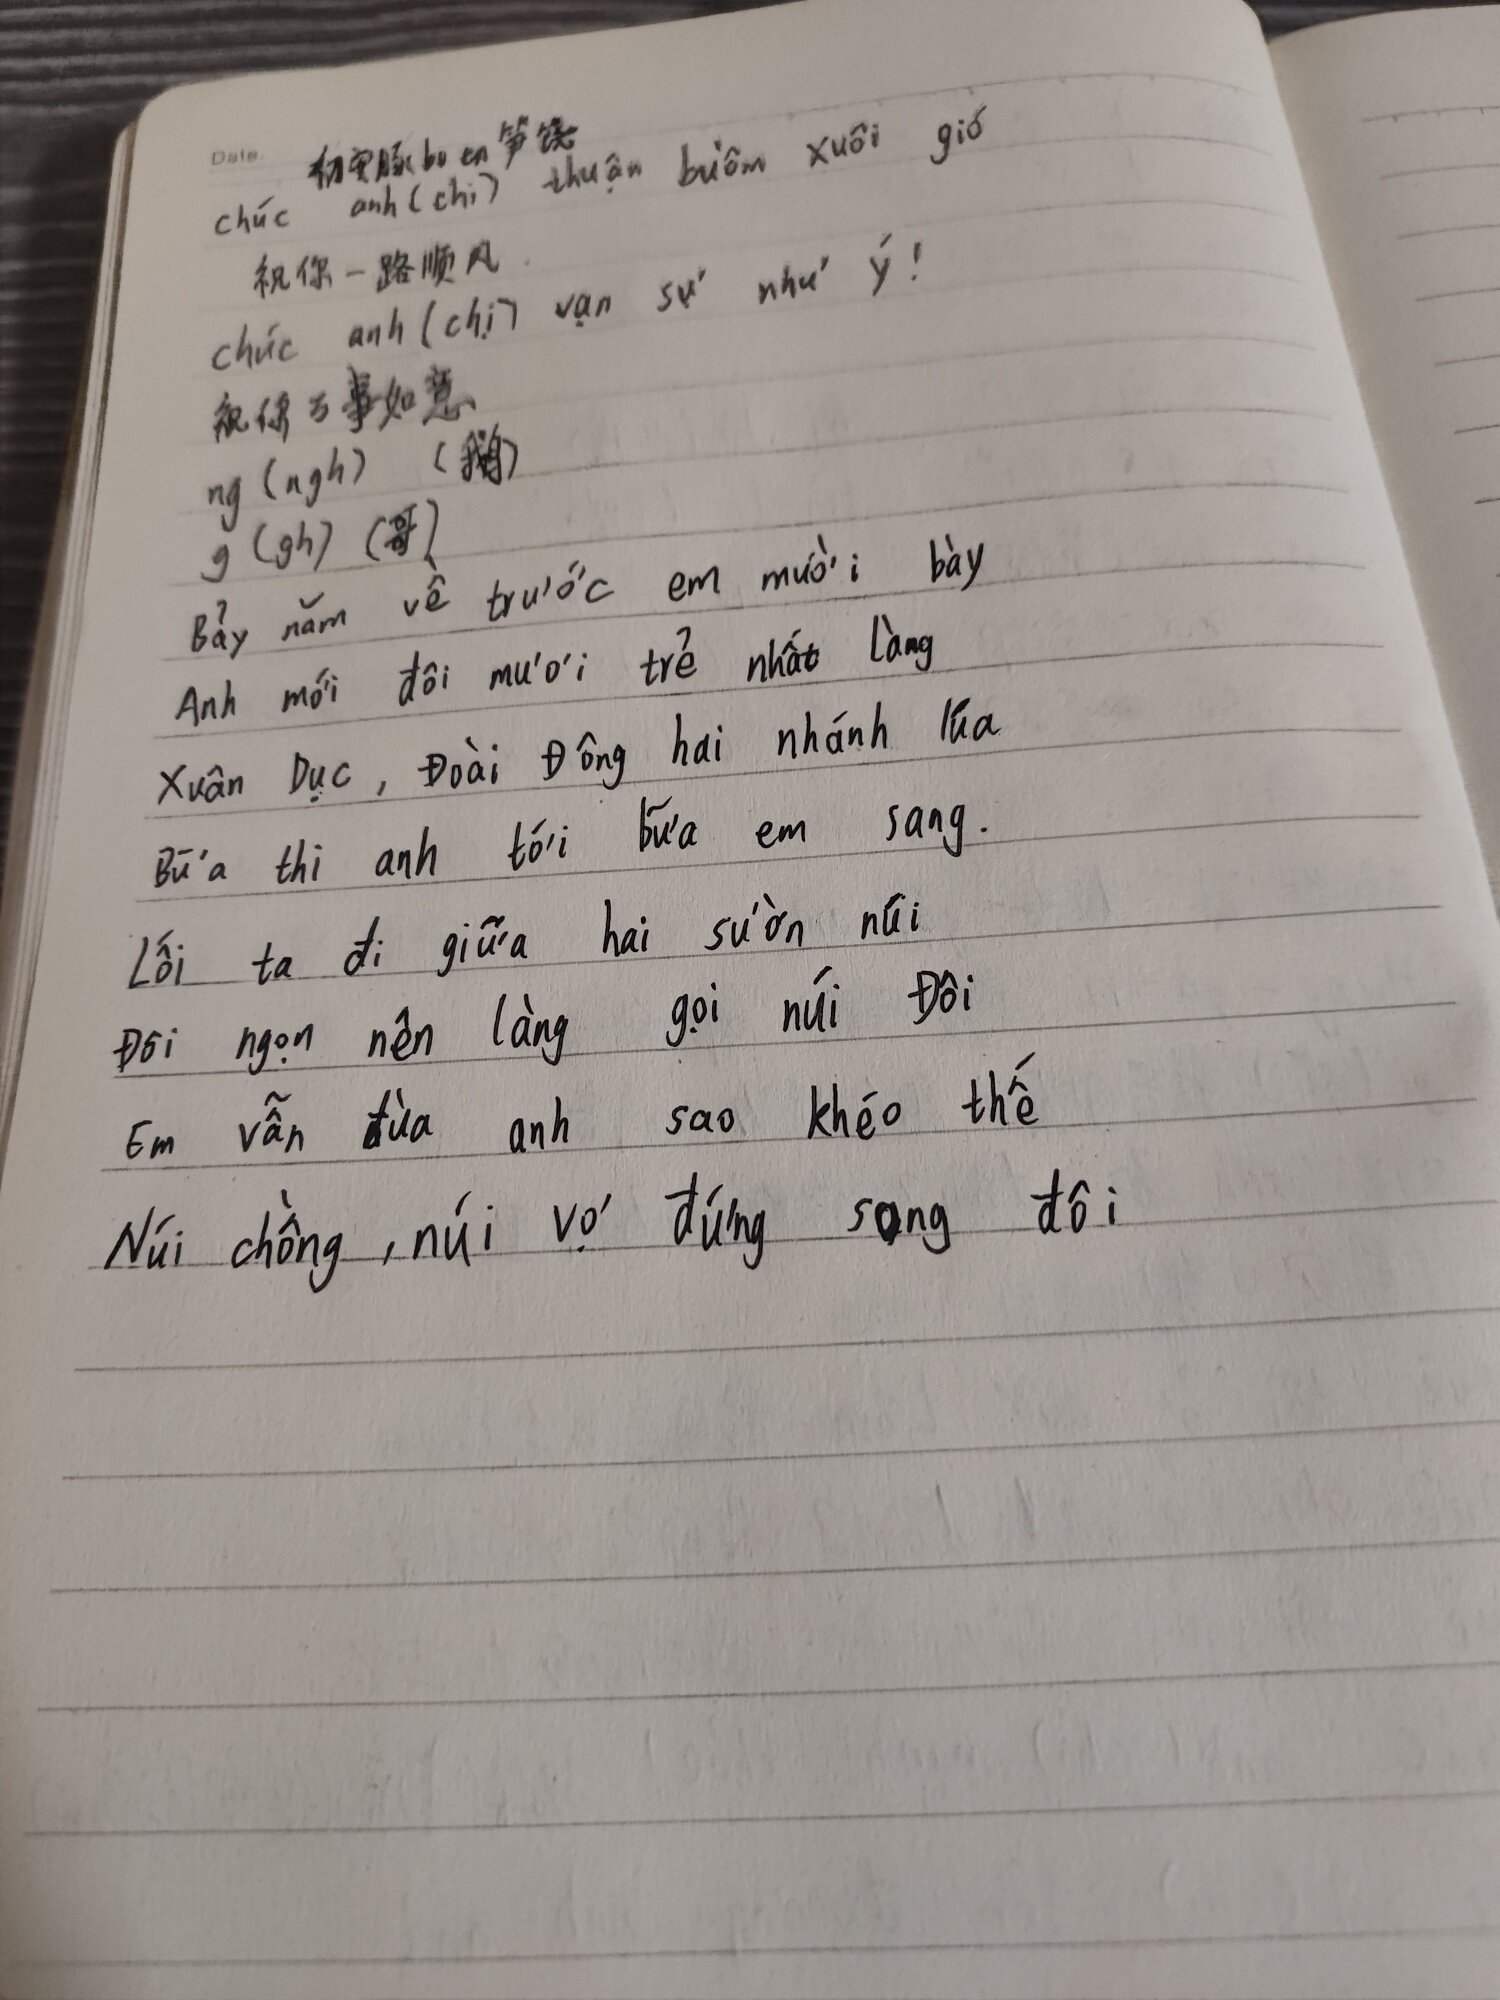 Date
bu en
chúc anh (chi) thuận buồm xuôi gió
祝你一路顺风
chúc anh (chị) vạn sự như ý!
祝你万事如意
ng (ngh) (鹅)
g (gh) (哥)
Bảy năm về trước em mười bảy
Anh mới đôi mươi trẻ nhất làng
Xuân Dục, Đoài Đông hai nhánh lúa
Bữa thi anh tới bữa em sang.
Lối ta đi giữa hai sườn núi
Đôi ngọn nên làng gọi núi Đôi
Em vẫn đùa anh sao khéo thế
Núi chồng, núi vợ đứng song đôi